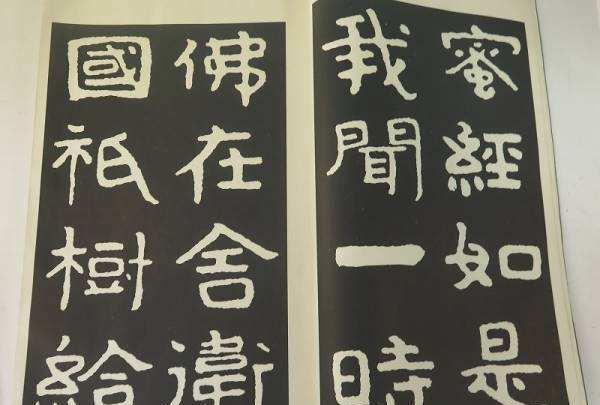 蜜經如是
我聞一時
佛在舍衛
國祇樹給